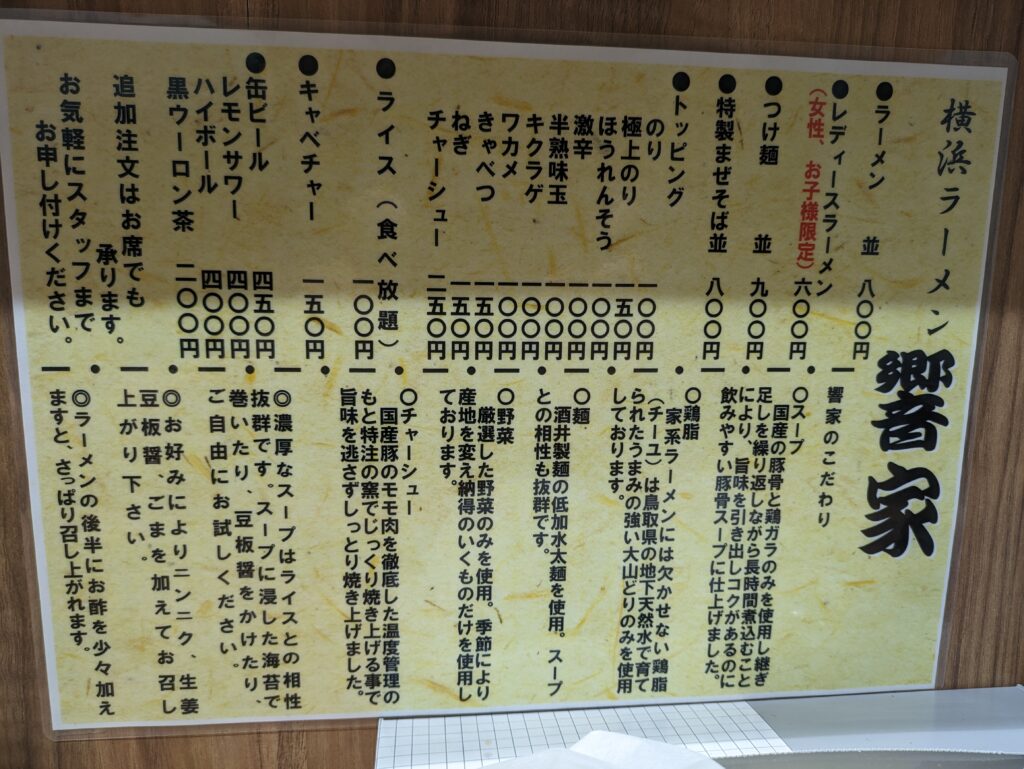 横浜ラーメン 響家
●ラーメン 並 八〇〇円
●レディースラーメン 六〇〇円
(女性、お子様限定)
●つけ麺 並 九〇〇円
●特製まぜそば並 八〇〇円
●トッピング
のり 一〇〇円
極上のり 一五〇円
ほうれんそう 一〇〇円
激辛 一〇〇円
半熟味玉 一〇〇円
キクラゲ 一〇〇円
ワカメ 一〇〇円
きゃべつ 一五〇円
ねぎ 一五〇円
チャーシュー 二五〇円
●ライス(食べ放題) 一〇〇円
●キャベチャー 一五〇円
●缶ビール 四五〇円
レモンサワー 四〇〇円
ハイボール 四〇〇円
黒ウーロン茶 二〇〇円
追加注文はお席でも
承ります。
お気軽にスタッフまで
お申し付けください。
響家のこだわり
〇スープ
国産の豚骨と鶏ガラのみを使用し継ぎ
足しを繰り返しながら長時間煮込むこと
により、旨味を引き出しコクがあるのに
飲みやすい豚骨スープに仕上げました。
〇鶏脂
家系ラーメンには欠かせない鶏脂
(チーユ)は鳥取県の地下天然水で育て
られたうまみの強い大山どりのみを使用
しております。
〇麺
酒井製麺の低加水太麺を使用。スープ
との相性も抜群です。
〇野菜
厳選した野菜のみを使用。季節により
産地を変え納得のいくものだけを使用し
ております。
〇チャーシュー
国産豚のモモ肉を徹底した温度管理の
もと特注の窯でじっくり焼き上げる事で
旨味を逃さずしっとり焼き上げました。
◎濃厚なスープはライスとの相性
抜群です。スープに浸した海苔で
巻いたり、豆板醤をかけたり、
ご自由にお試しください。
◎お好みによりニンニク、生姜
豆板醤、ごまを加えてお召し
上がり下さい。
◎ラーメンの後半にお酢を少々加え
ますと、さっぱり召し上がれます。